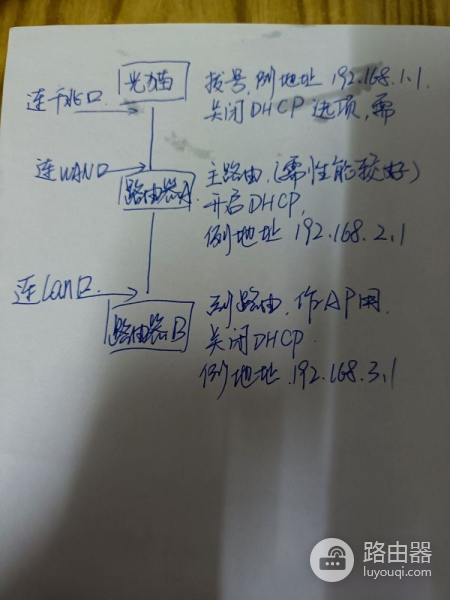 光猫
拨号,例地址 192.168.1.1.
连千兆口
关闭DHCP 选项,需
连WAN口
路由器A
主路由,(需性能较好)
开启DHCP,
例地址 192.168.2.1
连Lan口.
路由器B
副路由,作AP用.
关闭DHCP.
例地址.192.168.3.1
路由器
luyouqi.com